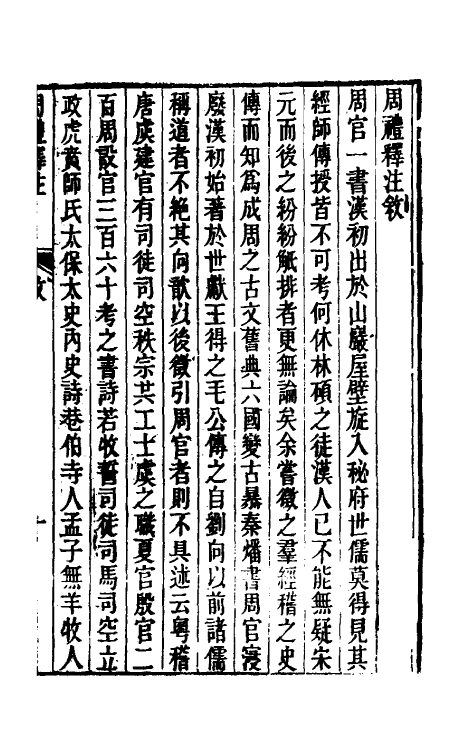 周禮釋注敘
周官一書漢初出於山巖屋壁旋入秘府世儒莫得見其
經師傳授皆不可考何休林碩之徒漢人已不能無疑宋
元而後之紛紛觝排者更無論矣余嘗徵之羣經稽之史
傳而知爲成周之古文舊典六國變古暴秦燔書周官寖
廢漢初始著於世獻王得之毛公傳之自劉向以前諸儒
稱道者不絕其向歆以後徵引周官者則不具述云粵稽
唐虞建官有司徒司空秩宗共工士虞之職夏官殷官二
百周設官三百六十考之書詩若牧誓司徒司馬司空立
政虎賁師氏太保太史內史詩巷伯寺人孟子無羊牧人
周禮釋注
敘
一